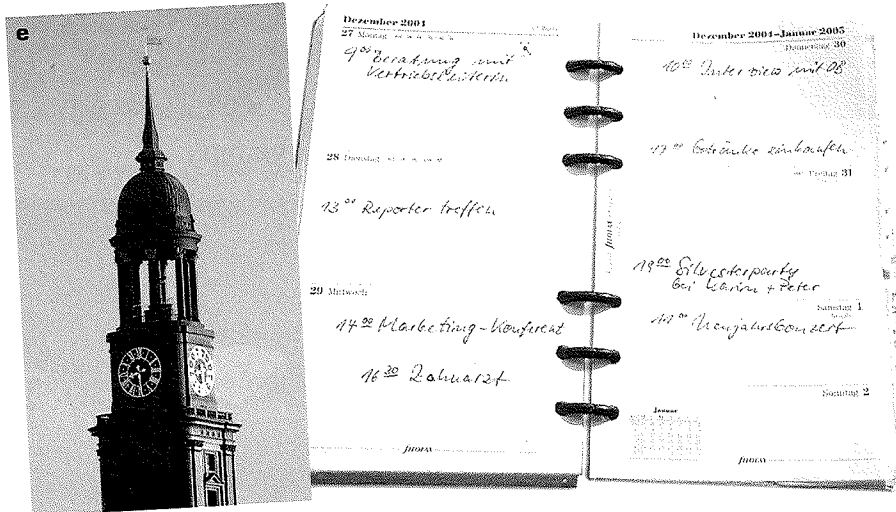 e
Dezember 2004
27 Montag
9⁰⁰ Beratung mit
Vertriebsleiterin
28 Dienstag
13⁰⁰ Reporter treffen
29 Mittwoch
14⁰⁰ Marketing-Konferenz
16³⁰ Zahnarzt
Dezember 2004–Januar 2005
Donnerstag 30
10⁰⁰ Interview mit OB
17⁰⁰ Getränke einkaufen
Freitag 31
19⁰⁰ Silvesterparty
bei Karin + Peter
Samstag 1
11⁰⁰ Neujahrskonzert
Sonntag 2
Januar